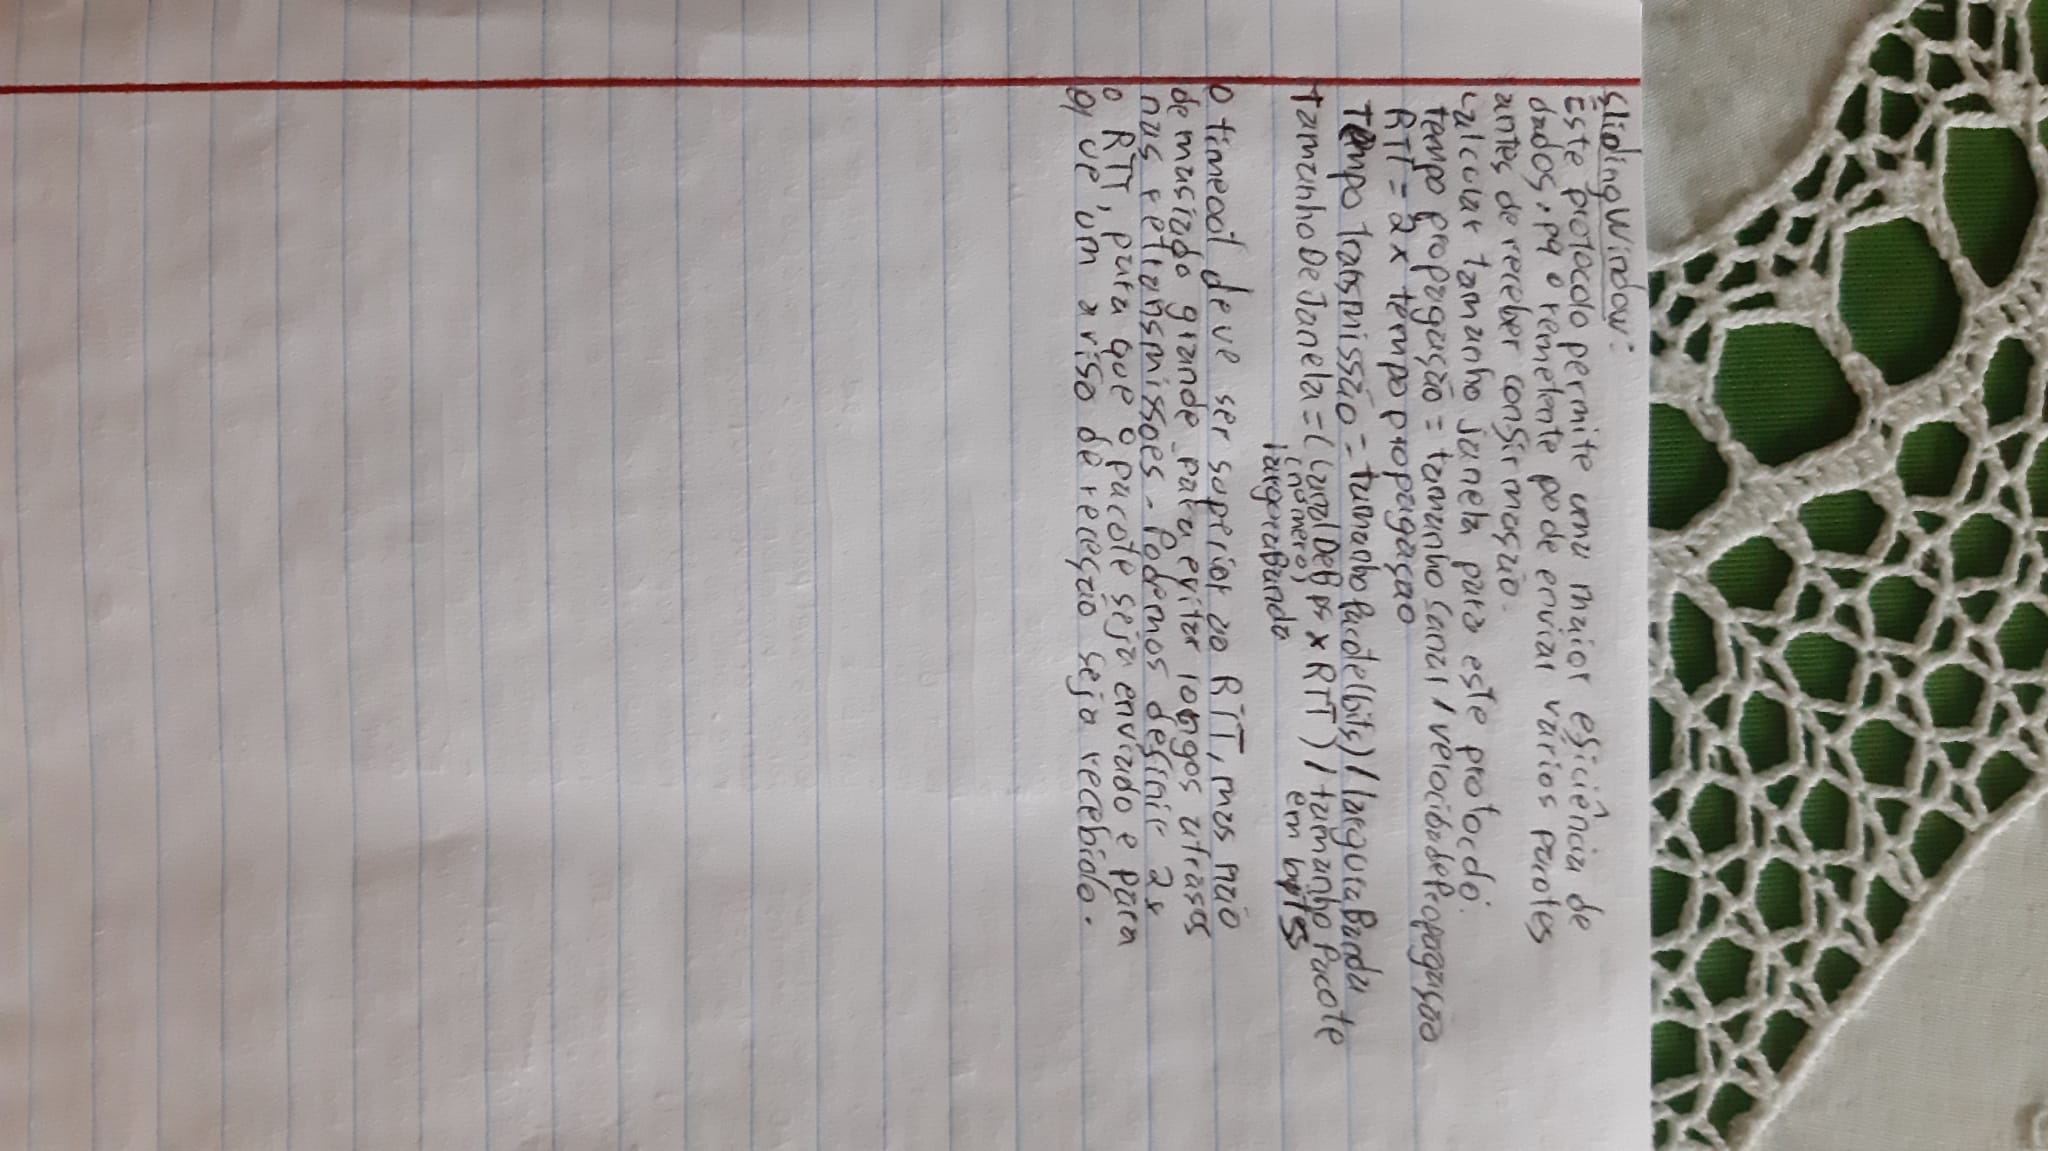 SlidingWindow:
Este protocolo permite uma maior eficiência de
dados, pq o remetente pode enviar vários pacotes
antes de receber confirmação.
Calcular tamanho janela para este protocolo:
tempo propagação = tamanho canal / velocidadePropagação
RTT = 2 x tempo propagação
Tempo transmissão = tamanho Pacote(bits) / larguraBanda
tamanhoDeJanela = (CanalDeBps x RTT) / tamanho Pacote
(número) em bytes
larguraBanda
O timeout deve ser superior ao RTT, mas não
demasiado grande para evitar longos atrasos
nas retransmissões. Podemos definir 2x
o RTT, para que o pacote seja enviado e para
que um aviso de receção seja recebido.